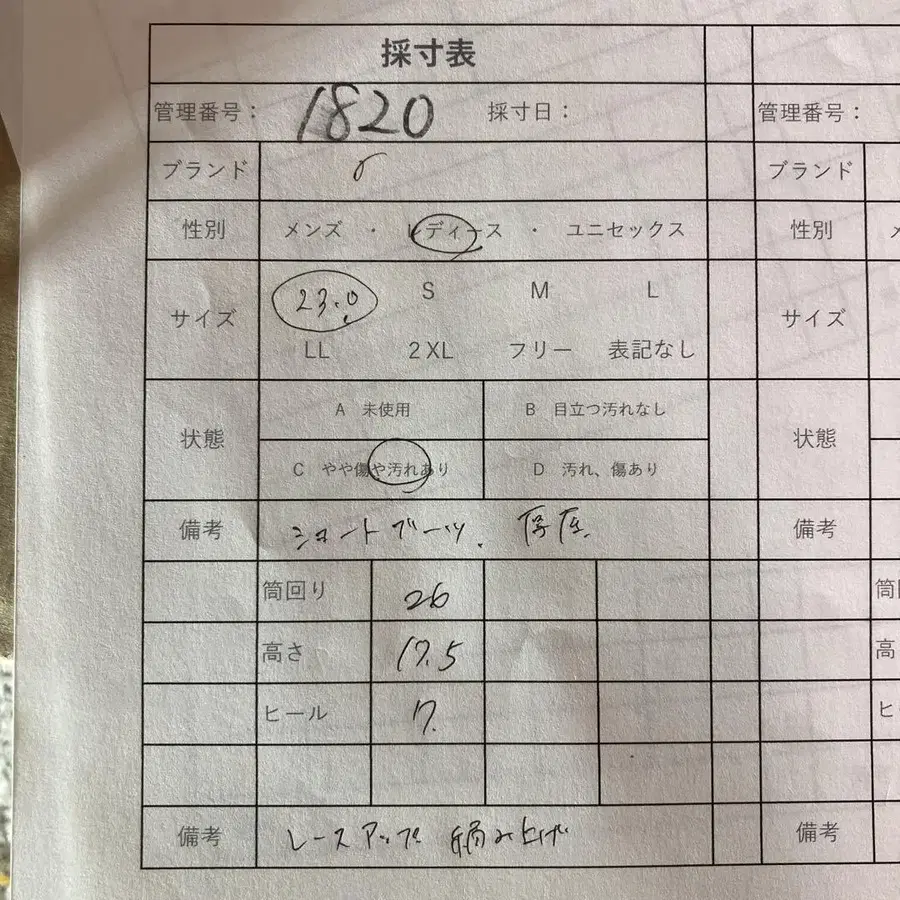 採寸表
管理番号： 1820 採寸日： 管理番号：
ブランド ブランド
性別 メンズ ・ レディース ・ ユニセックス 性別
サイズ 23.0 S M L サイズ
LL 2XL フリー 表記なし
状態 A 未使用 B 目立つ汚れなし 状態
C やや傷や汚れあり D 汚れ、傷あり
備考 ショートブーツ. 厚底. 備考
筒回り 26 筒
高さ 17.5 高
ヒール 7. ヒ
備考 レースアップ 編み上げ 備考